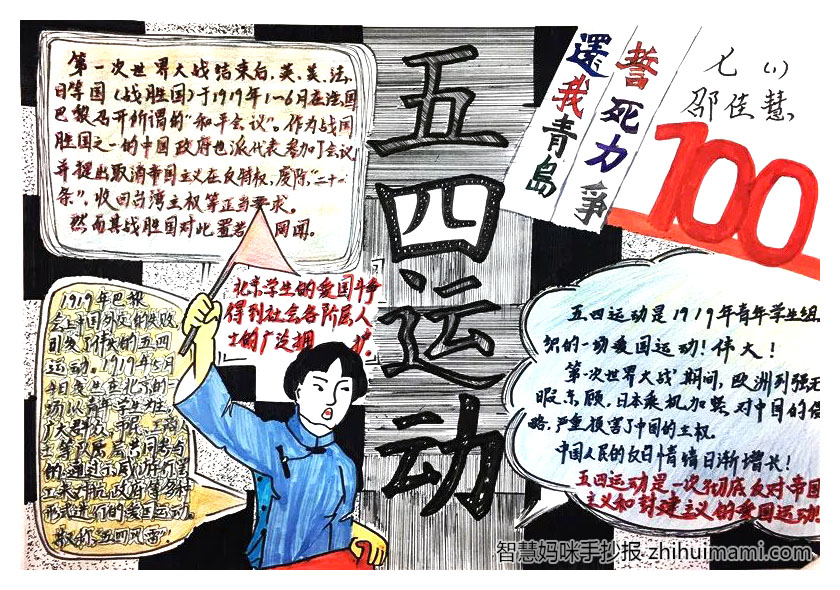 五四运动
還我青岛
誓死力争
七(1)
邵佳慧
100
第一次世界大战结束后，英、美、法、
日等国（战胜国）于1919年1~6月在法国
巴黎召开所谓的“和平会议”。作为战国
胜国之一的中国政府也派代表参加了会议
并提出取消帝国主义在反特权，废除“二十一
条”，收回台湾主权等正当要求。
然而其战胜国对此置若 罔闻。
北京学生的爱国斗争
得到社会各阶层人
士的广泛拥 护。
1919年巴黎
会上中国外交的失败，
引发了伟大的五四
运动。1919年5月
4日发生在北京的一
场以青年学生为主，
广大群众、市民、工商人
士等阶层共同参与
的，通过示
形式进行的爱国运动。
五四运动是1919年青年学生组
织的一场爱国运动！伟大！
第一次世界大战期间，欧洲列强无
暇东顾，日本乘机加紧对中国的侵
略，严重损害了中国的主权。
中国人民的反日情绪日渐增长！
五四运动是一次彻底反对帝国
主义和封建主义的爱国运动！
智慧妈咪手抄报 zhihuimami.com